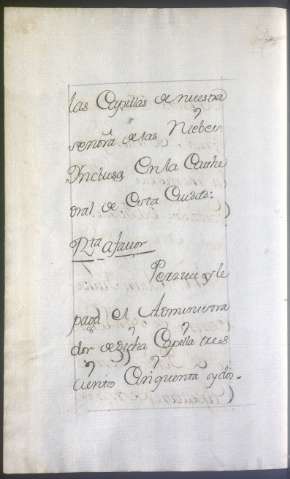 las Capillas de nuestra
señora de las Nieves
Inclusa En la Cathe
dral de Esta Ciudad:
Rta a favor
Por que le
paga el Administra
dor de dicha Capilla tres
ciento Cinquenta y dos.